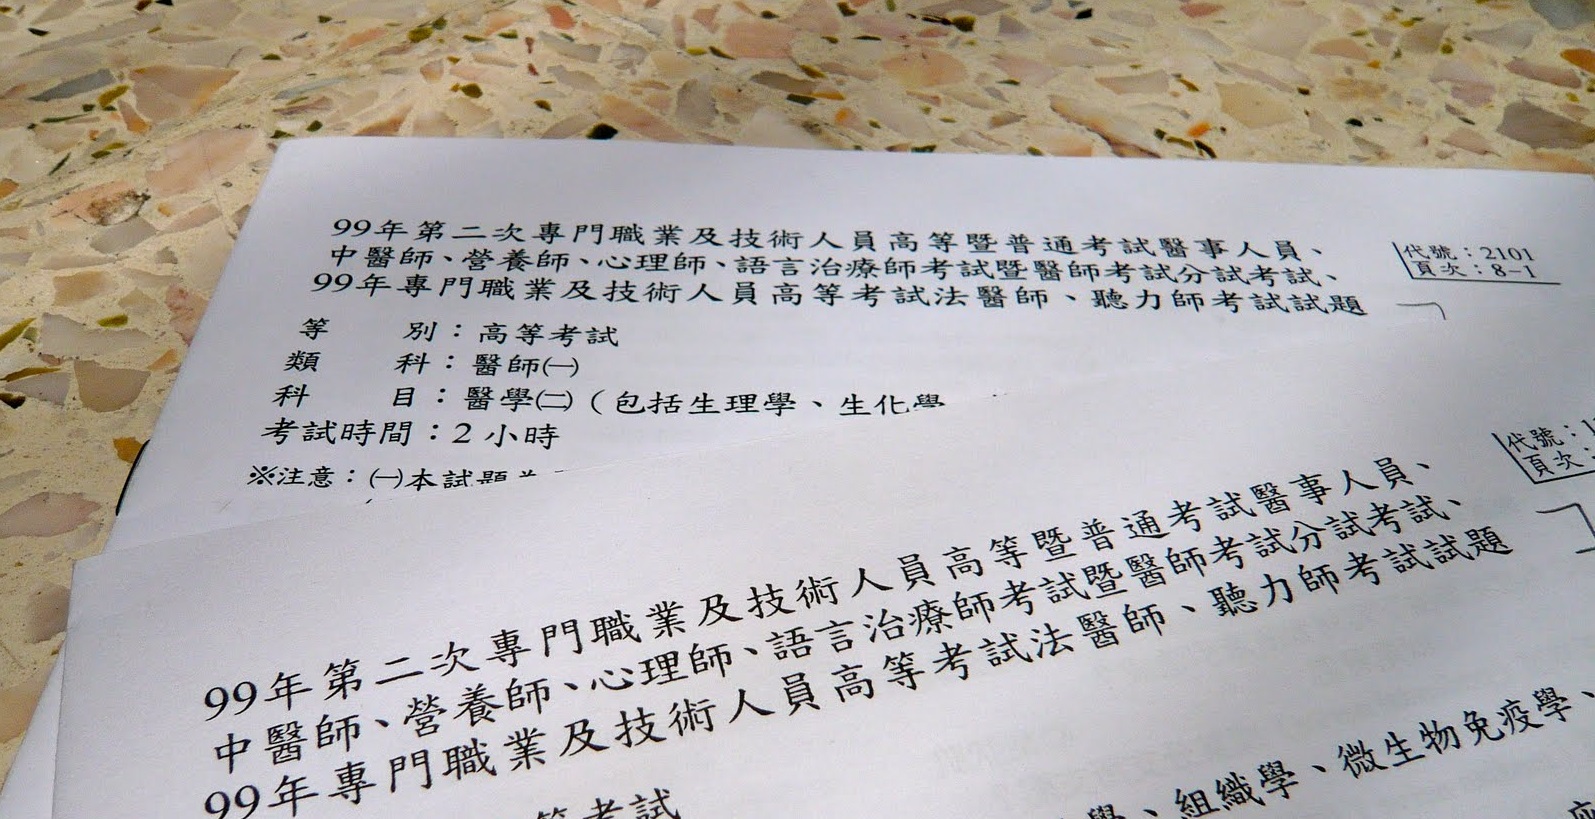 99年第二次專門職業及技術人員高等暨普通考試醫事人員、
中醫師、營養師、心理師、語言治療師考試暨醫師考試分試考試、
99年專門職業及技術人員高等考試法醫師、聽力師考試試題
代號：2101
頁次：8-1
等別：高等考試
類科：醫師㈠
科目：醫學㈡（包括生理學、生化學
考試時間：2小時
※注意：㈠本試題
代號：1
頁次：
99年第二次專門職業及技術人員高等暨普通考試醫事人員、
中醫師、營養師、心理師、語言治療師考試暨醫師考試分試考試、
99年專門職業及技術人員高等考試法醫師、聽力師考試試題
等考試
學、組織學、微生物免疫學、